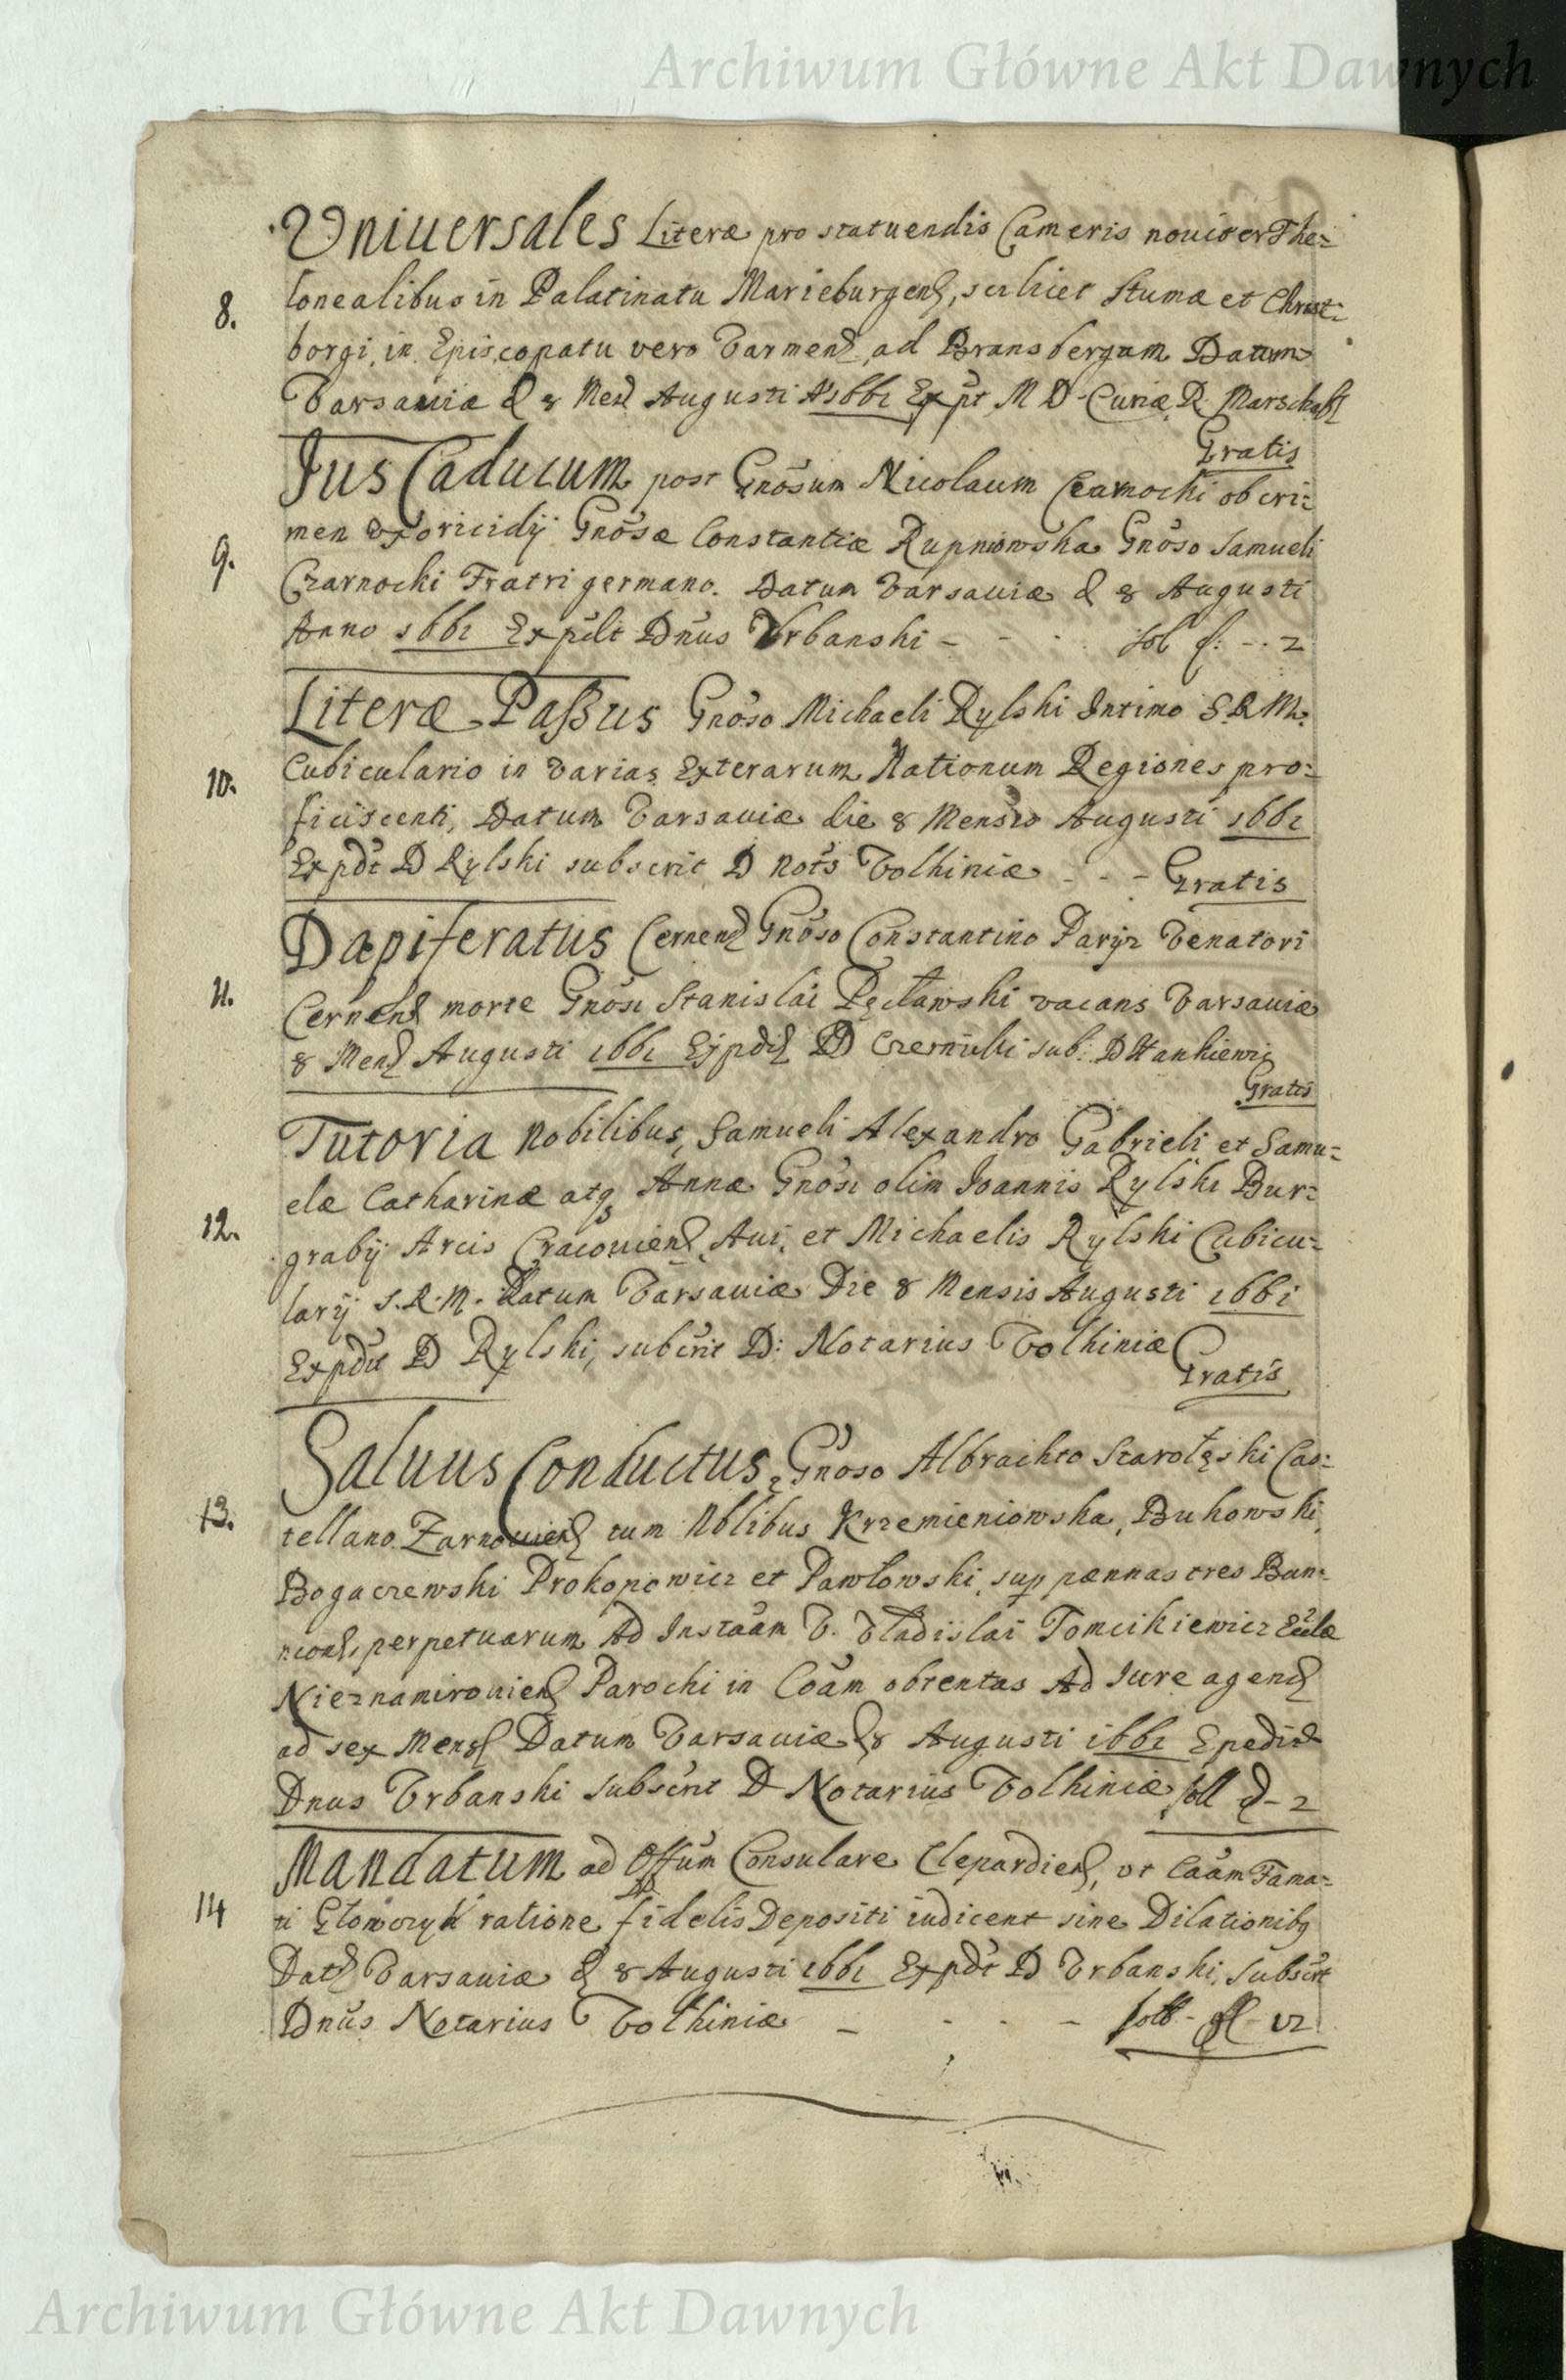 Archiwum Główne Akt Dawnych
Vniuersales Literæ pro statuendis Cameris nouis et The=
8. lonealibus in Palatinatu Marieburgens, scilicet Stumæ et Christ=
borgi, in Episcopatu vero Varmens ad Bransbergam Datum
Varsauiæ d 8 Mens Augusti Ao 1661 Expt M D Curiæ R Marschals
Gratis
Jus Caducum post Gnosum Nicolaum Czarnocki ob cri=
9. men vxoricidij Gnosæ Constantiæ Rupniowska Gnoso Samueli
Czarnocki Fratri germano. Datum Varsauiæ d 8 Augusti
Anno 1661 Expdit Dnus Vrbanski - - - sol f: - - 2
Literæ Passus Gnoso Michaeli Rylski Intimo S. R. M.
10. Cubiculario in varias Exterarum Nationum Regiones pro=
ficiscenti, Datum Varsauiæ die 8 Mensis Augusti 1661
Expdt D Rylski subscrit D Nots Volhiniæ - - - Gratis
Dapiferatus Cernens Gnoso Constantino Paryz Venatori
11. Cernens morte Gnosi Stanislai Pęcławski vacans Varsauiæ
8 Mens Augusti 1661 Expdt D Czernicki sub: D Stankiewicz
Gratis
Tutoria Nobilibus, Samueli Alexandro Gabrieli et Samu=
elæ Catharinæ atq Annæ Gnosi olim Joannis Rylski Bur=
12. grabij Arcis Cracouiens Aui, et Michaelis Rylski Cubicu=
larij S. R. M. Datum Varsauiæ Die 8 Mensis Augusti 1661
Expdit D Rylski, subcrit D: Notarius Volhiniæ
Gratis
Saluus Conductus Gnoso Albrachto Starołęski Cas=
13. tellano Zarnouiens tum Nblibus Krzemieniowska, Bukowski,
Bogaczewski Prokopowicz et Pawłowski, sup pænnas tres Ban=
nicions perpetuarum Ad Instaam V. Vladislai Tomcikiewicz Eccle
Nieznamirouiens Parochi in Coam obtentas Ad Jure agens
ad sex Mens Datum Varsauiæ d 8 Augusti 1661 Epedit
Dnus Vrbanski subscrit D Notarius Volhiniæ soll d - 2
Mandatum ad Offum Consulare Clepardiens, vt Caam Fama=
14 ti Głowczyk ratione fidelis Depositi iudicent sine Dilationibq
Dats Varsauiæ d 8 Augusti 1661 Expdt D Vrbanski, Subscrt
Dnus Notarius Volhiniæ - - - - soll - fl - 12
Archiwum Główne Akt Dawnych